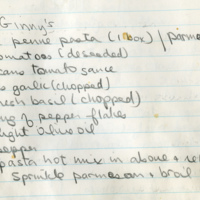 Ginny's
penne pasta (1 box) / parmes
omatoes (deseeded)
ano tomato sauce
garlic (chopped)
sh basil (chopped)
of pepper flakes
ght Olive oil
epper
pasta hot mix in above +
sprinkle parmesan + broil